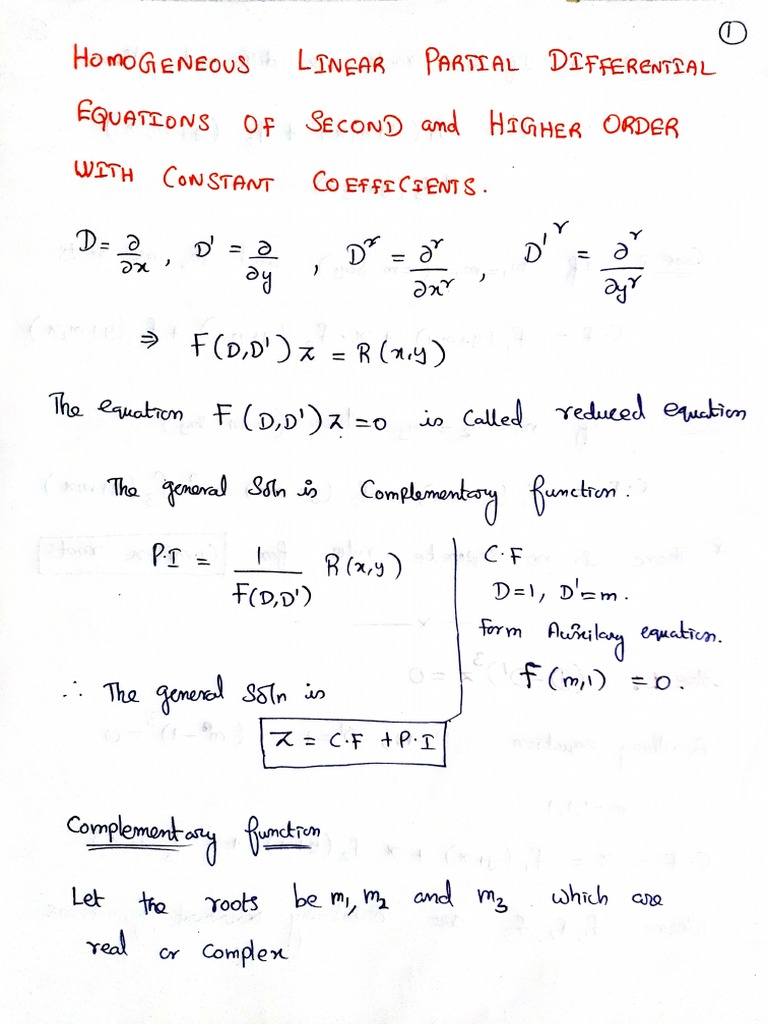 ①
HOMOGENEOUS LINEAR PARTIAL DIFFERENTIAL
EQUATIONS OF SECOND and HIGHER ORDER
WITH CONSTANT COEFFICIENTS.
D = ∂/∂x , D' = ∂/∂y , D^r = ∂^r/∂x^r , D'^r = ∂^r/∂y^r
⇒ F(D,D')z = R(x,y)
The equation F(D,D')z = 0 is called reduced equation
The general Soln is Complementary function.
P.I = 1/F(D,D') R(x,y)
C.F
D=1, D'=m.
form Auxilary equation.
F(m,1) = 0.
∴ The general Soln is
z = C.F + P.I
Complementary function
Let the roots be m₁, m₂ and m₃ which are
real or complex